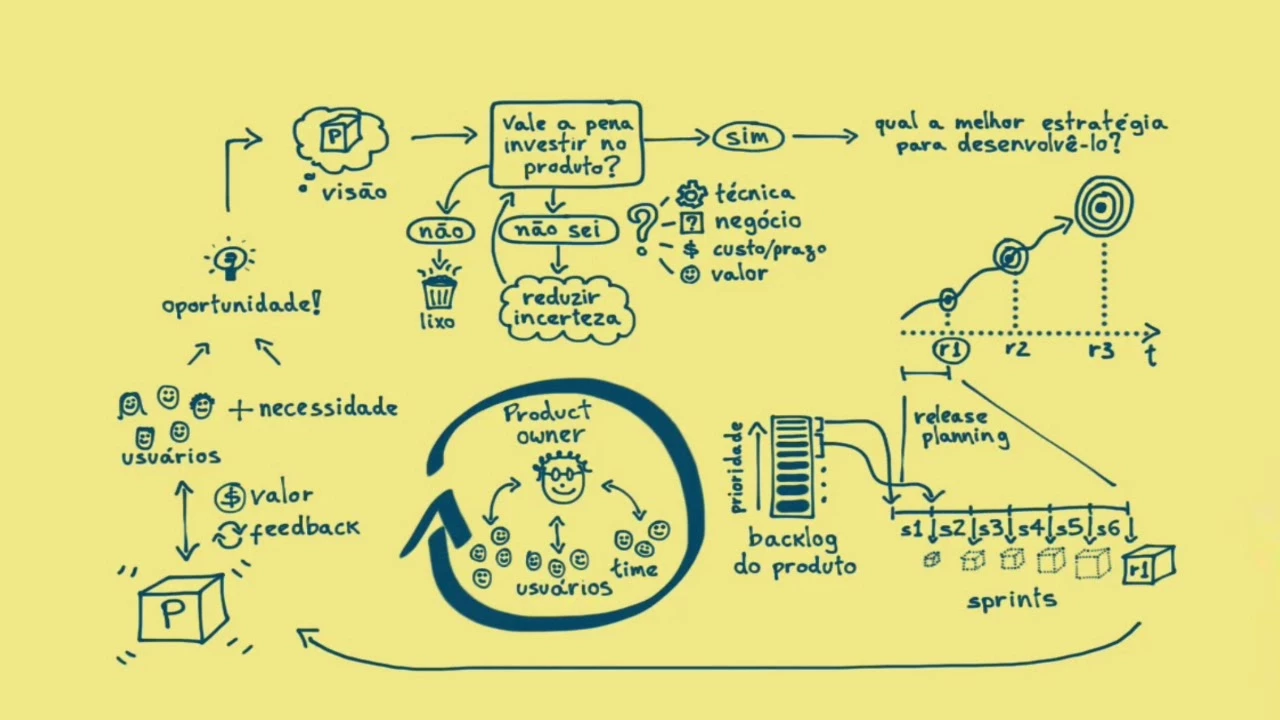 P
visão
Vale a pena
investir no
produto?
sim
qual a melhor estratégia
para desenvolvê-lo?
não
não sei
lixo
reduzir
incerteza
?
técnica
?
negócio
$
custo/prazo
valor
r1
r2
r3
t
oportunidade!
+ necessidade
usuários
$ valor
feedback
P
Product
owner
usuários
time
prioridade
backlog
do produto
release
planning
s1 s2 s3 s4 s5 s6
r1
sprints